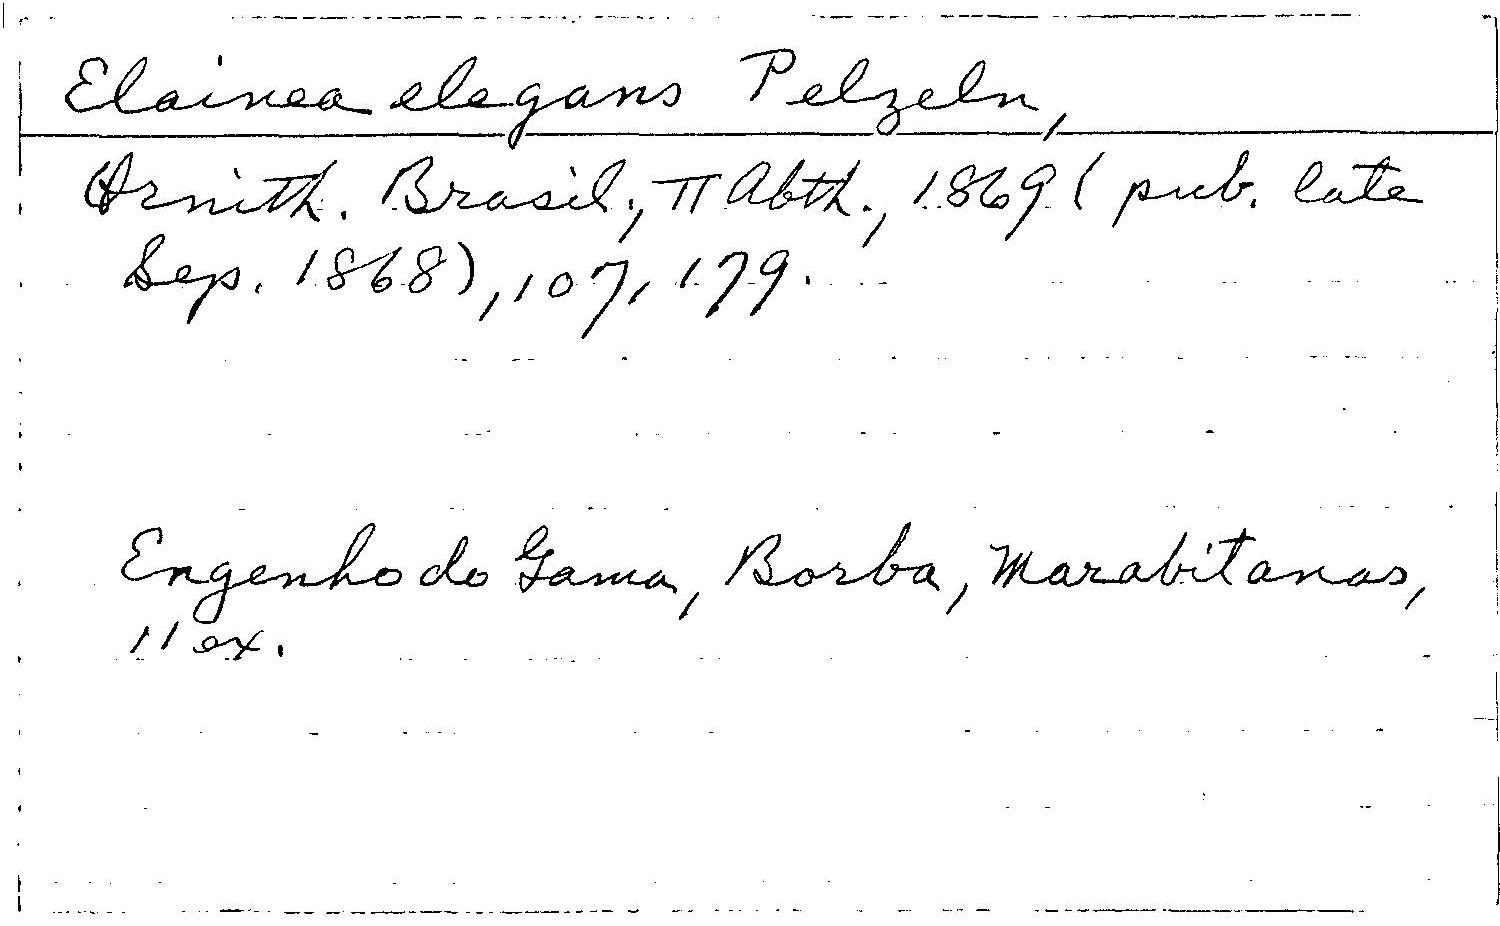 Elainea elegans Pelzeln,
Ornith. Brasil., II Abth., 1869 ( pub. late
Sep. 1868), 107, 179.
Engenho do Gama, Borba, Marabitanas,
11 ex.